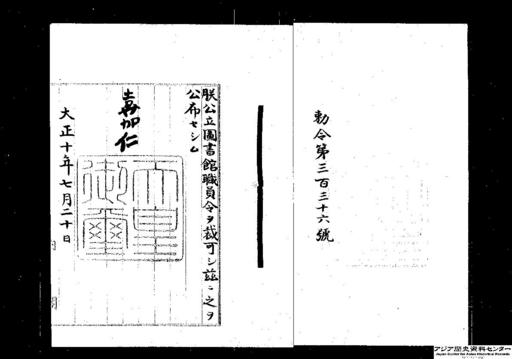 勅令第三百三十六號
朕公立圖書館職員令ヲ裁可シ茲ニ之ヲ
公布セシム
嘉仁
天皇
御璽
大正十年七月二十日
アジア歴史資料センター
Japan Center for Asian Historical Records